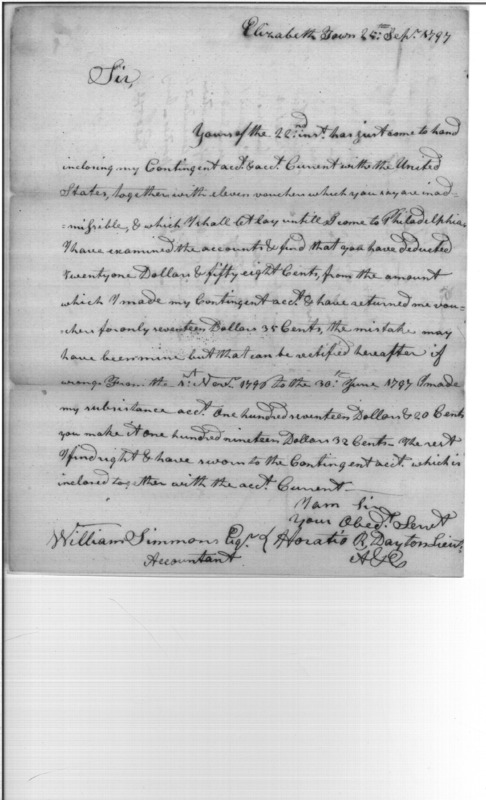 Elizabeth Town 25th Sepr. 1797
Sir,
Yours of the 22nd inst. has just come to hand
inclosing my Contingent acct. & acct. Current with the United
States, together with eleven vouchers which you say are inad=
=missible, & which I shall let lay untill I come to Philadelphia.
I have examined the accounts & find that you have deducted
twenty one Dollars & fifty eight Cents, from the amount
which I made my Contingent acct. & have returned me vou=
chers for only seventeen Dollars 35 Cents, the mistake may
have been mine but that can be rectified hereafter if
wrong. From the 1st Novr. 1796 to the 30th June 1797 I made
my subsistance acct. One hundred seventeen Dollars & 20 Cents
you make it one hundred nineteen Dollars 32 Cents— The rest
I find right & have sworn to the Contingent acct. which is
inclosed together with the acct. Current—
I am Sir
Your Obedt. Servt
William Simmons Esqr. Horatio R. Dayton Lieut.
Accountant